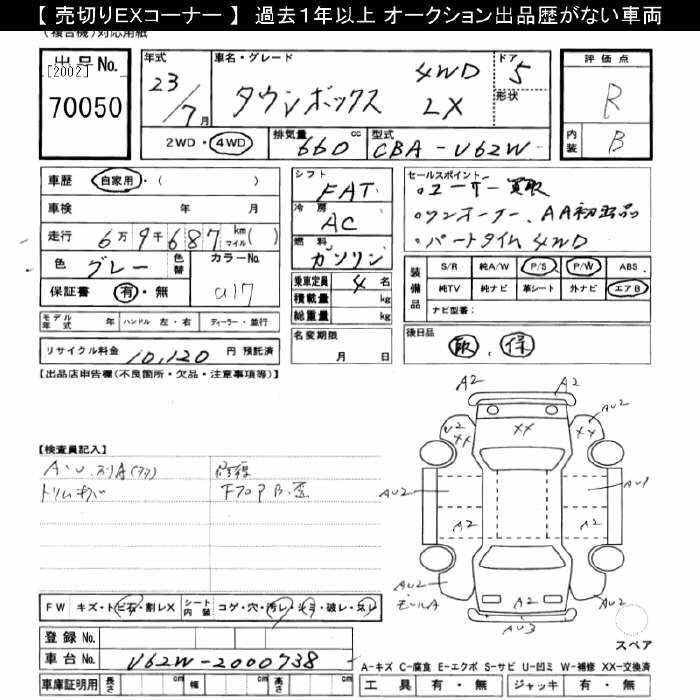 【 売切りEXコーナー 】 過去1年以上 オークション出品歴がない車両
(複合機)対応用紙
出品No. [2002] 70050
年式 23/7月
車名・グレード タウンボックス 4WD LX
ドア 5
形状
2WD・4WD 排気量 660 cc 型式 CBA-U62W-
評価点 R
内装 B
車歴 自家用・( )
車検 年 月
走行 6万9千687 km マイル( )
色 グレー 色替 カラーNo. U17
保証書 有・無
モデル年式 年 ハンドル 左・右 ディーラー・並行
リサイクル料金 10,120 円 預託済
シフト FAT
冷房 AC
燃料 ガソリン
乗車定員 4 名
積載量 kg
総重量 kg
名変期限 月 日
セールスポイント
・ユーザー買取
・ワンオーナー、AA初出品
・パートタイム4WD
装備品 S/R 純A/W P/S P/W ABS
純TV 純ナビ 革シート 外ナビ エアB
ナビ型番:
後日品 取、保
【出品店申告欄(不良箇所・欠品・注意事項等)】
【検査員記入】
A・U
修復
FフロアB・歪
FW キズ・トビ石・割レX シート内装 コゲ・穴・汚レ・シミ・破レ・スレ
A2 A2
AU2
U2 XX XX XX
AU2 AU1
A2 A2
AU2 モールA A2 AU2
AU3
スペア
登録No.
車台No. U62W-2000738
車庫証明用 長さ cm 幅 cm 高さ cm
A-キズ C-腐食 E-エクボ S-サビ U-凹ミ W-補修 XX-交換済
工具 有・無 ジャッキ 有・無